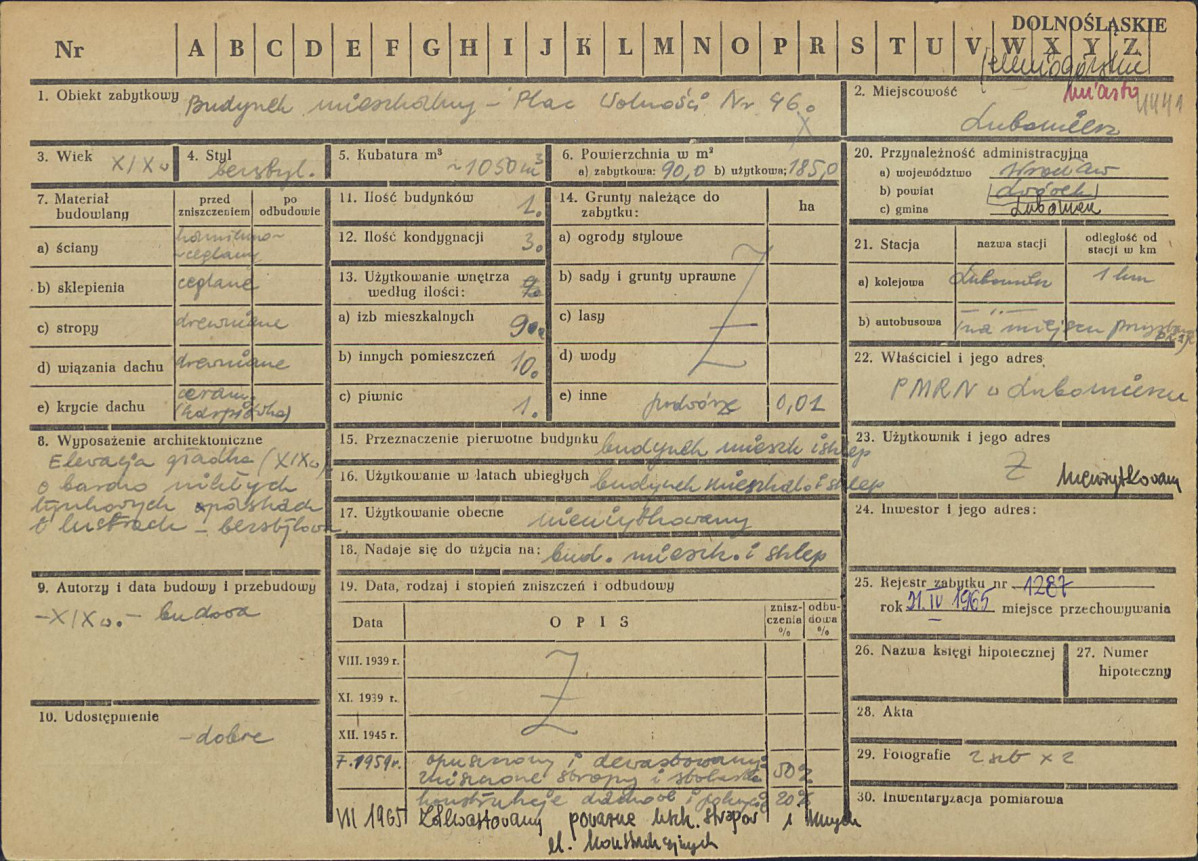 DOLNOŚLĄSKIE
Nr A B C D E F G H I J K L M N O P R S T U V W X Y Z
jeleniogórskie
1. Obiekt zabytkowy Budynek mieszkalny - Plac Wolności Nr 46.
X
2. Miejscowość miasto
Lubomierz
3. Wiek XIX w
4. Styl bezstyl.
5. Kubatura m³ ~1050 m³
6. Powierzchnia w m²
a) zabytkowa: 90,0 b) użytkowa: 185,0
20. Przynależność administracyjna
a) województwo Wrocław
b) powiat
c) gmina Lubomierz
7. Materiał budowlany
przed zniszczeniem
po odbudowie
a) ściany kamienno-
-ceglany
b) sklepienia ceglane
c) stropy drewniane
d) wiązania dachu drewniane
e) krycie dachu ceram.
(karpiówka)
11. Ilość budynków 1.
12. Ilość kondygnacji 3.
13. Użytkowanie wnętrza
według ilości:
a) izb mieszkalnych 9.
b) innych pomieszczeń 10.
c) piwnic 1.
14. Grunty należące do
zabytku:
ha
a) ogrody stylowe
b) sady i grunty uprawne
c) lasy
d) wody
e) inne podwórze 0,01
21. Stacja
nazwa stacji
odległość od
stacji w km
a) kolejowa Lubomierz 1 km
b) autobusowa - " - na miejscu
22. Właściciel i jego adres
PMRN w Lubomierzu
8. Wyposażenie architektoniczne
Elewacja gładka (XIX w)
o bardzo nikłych
tynkowych opaskach
i lustrach - bezstylowa.
15. Przeznaczenie pierwotne budynku budynek mieszk i sklep
16. Użytkowanie w latach ubiegłych budynek mieszkal. i sklep
17. Użytkowanie obecne nieużytkowany
18. Nadaje się do użycia na: bud. mieszk. i sklep
23. Użytkownik i jego adres
nieużytkowany
24. Inwestor i jego adres:
9. Autorzy i data budowy i przebudowy
- XIX w. - budowa
10. Udostępnienie
- dobre
19. Data, rodzaj i stopień zniszczeń i odbudowy
Data
OPIS
znisz-
czenia
%
odbu-
dowa
%
VIII. 1939 r.
XI. 1939 r.
XII. 1945 r.
7.1959r. opuszczony i dewastowany
zniszczone stropy i stolarka 50%
konstrukcje dachowe i pokrycie 20%
VII 1965 Zdewastowany poważne uszk. stropów i innych
el. konstrukcyjnych
25. Rejestr zabytku nr 1287
rok 21.IV 1965 miejsce przechowywania
26. Nazwa księgi hipotecznej
27. Numer
hipoteczny
28. Akta
29. Fotografie 2 szt x 2
30. Inwentaryzacja pomiarowa